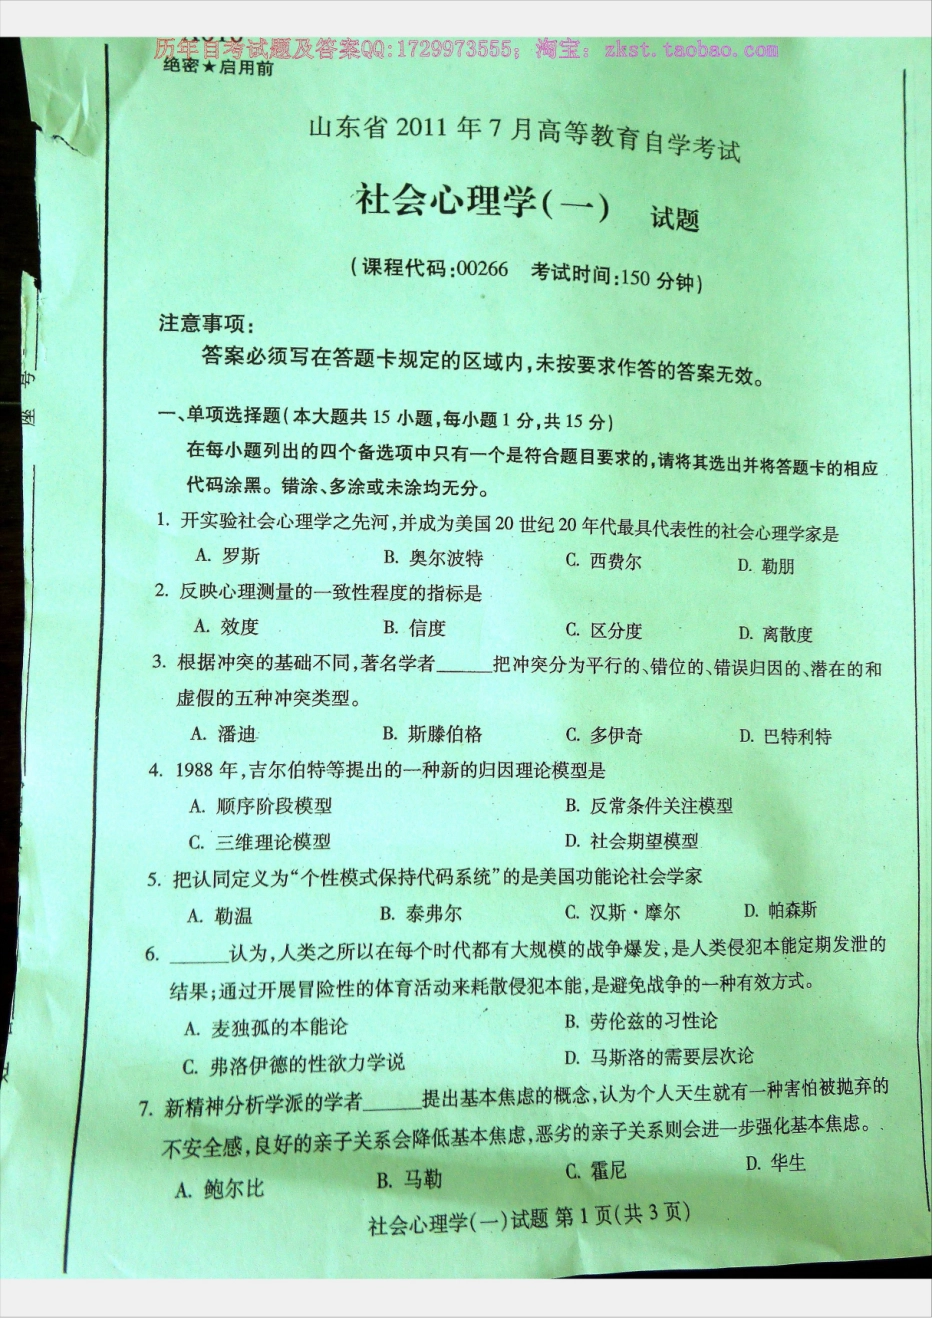 历年自考试题及答案QQ:1729973555; 淘宝: zkst.taobao.com
绝密★启用前
山东省 2011 年 7 月高等教育自学考试
社会心理学(一) 试题
(课程代码:00266 考试时间:150 分钟)
注意事项:
答案必须写在答题卡规定的区域内,未按要求作答的答案无效。
一、单项选择题(本大题共 15 小题,每小题 1 分,共 15 分)
在每小题列出的四个备选项中只有一个是符合题目要求的,请将其选出并将答题卡的相应
代码涂黑。错涂、多涂或未涂均无分。
1. 开实验社会心理学之先河,并成为美国 20 世纪 20 年代最具代表性的社会心理学家是
A. 罗斯 B. 奥尔波特 C. 西费尔 D. 勒朋
2. 反映心理测量的一致性程度的指标是
A. 效度 B. 信度 C. 区分度 D. 离散度
3. 根据冲突的基础不同,著名学者______把冲突分为平行的、错位的、错误归因的、潜在的和
虚假的五种冲突类型。
A. 潘迪 B. 斯滕伯格 C. 多伊奇 D. 巴特利特
4. 1988 年,吉尔伯特等提出的一种新的归因理论模型是
A. 顺序阶段模型 B. 反常条件关注模型
C. 三维理论模型 D. 社会期望模型
5. 把认同定义为“个性模式保持代码系统”的是美国功能论社会学家
A. 勒温 B. 泰弗尔 C. 汉斯·摩尔 D. 帕森斯
6. ______认为,人类之所以在每个时代都有大规模的战争爆发,是人类侵犯本能定期发泄的
结果;通过开展冒险性的体育活动来耗散侵犯本能,是避免战争的一种有效方式。
A. 麦独孤的本能论 B. 劳伦兹的习性论
C. 弗洛伊德的性欲力学说 D. 马斯洛的需要层次论
7. 新精神分析学派的学者______提出基本焦虑的概念,认为个人天生就有一种害怕被抛弃的
不安全感,良好的亲子关系会降低基本焦虑,恶劣的亲子关系则会进一步强化基本焦虑。
A. 鲍尔比 B. 马勒 C. 霍尼 D. 华生
社会心理学(一)试题 第 1 页(共 3 页)
座 号